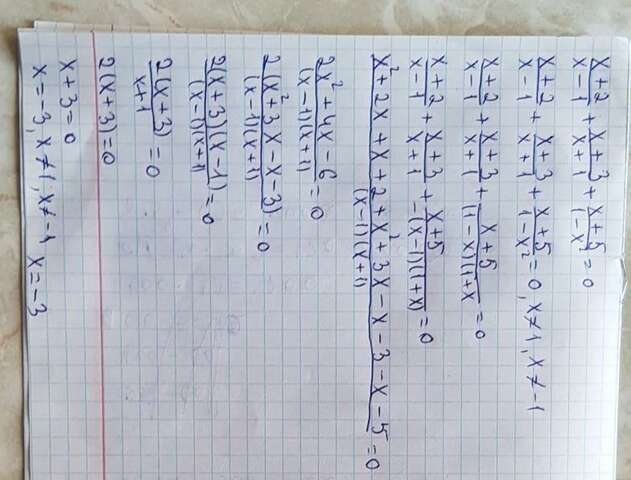 x+2/x-1 + x+3/x+1 + x+5/1-x² = 0
x+2/x-1 + x+3/x+1 + x+5/1-x² = 0, x≠1, x≠-1
x+2/x-1 + x+3/x+1 + x+5/(1-x)(1+x = 0
x+2/x-1 + x+3/x+1 + x+5/-(x-1)(1+x) = 0
x²+2x+x+2+x²+3x-x-3-x-5/(x-1)(x+1) = 0
2x²+4x-6/(x-1)(x+1) = 0
2(x²+3x-x-3)/(x-1)(x+1) = 0
2(x+3)(x-1)/(x-1)(x+1) = 0
2(x+3)/x+1 = 0
2(x+3)=0
x+3=0
x=-3, x≠1, x≠-1 x=-3